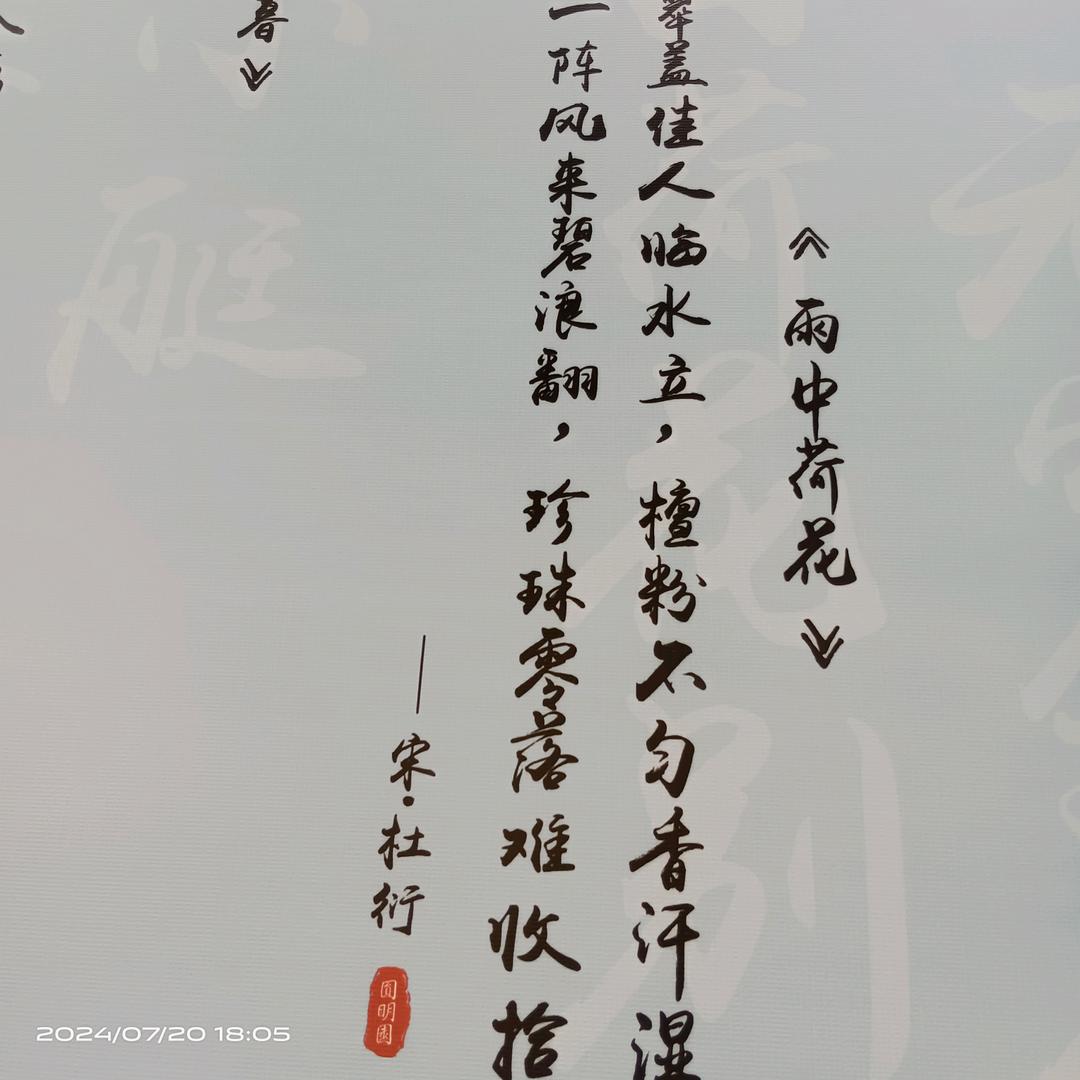 《雨中荷花》
翠盖佳人临水立，檀粉不匀香汗湿
一阵风来碧浪翻，珍珠零落难收拾
——宋·杜衍
圆明园
春》
2024/07/20 18:05